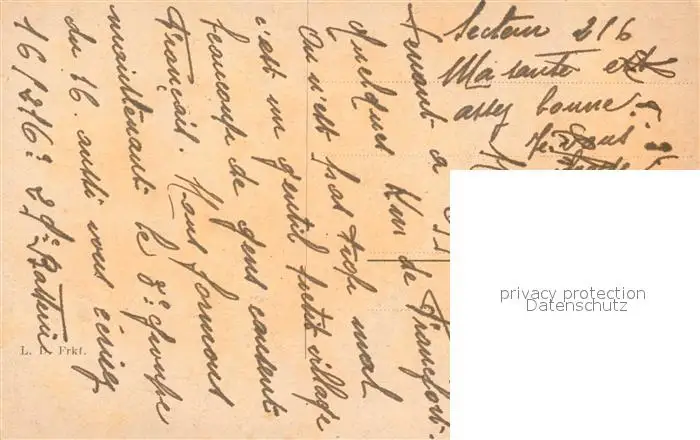 Secteur 216
Ma santé est
assez bonne.
Je vous
tenant a
quelques Km de Francfort.
On n'est pas trop mal
c'est un gentil petit village
beaucoup de gens causent
Français. Nous formons
maintenant le 3e groupe
du 16. aussi vous écrirez
16/216? 2e Batterie
L. L. Frkf.
privacy protection
Datenschutz